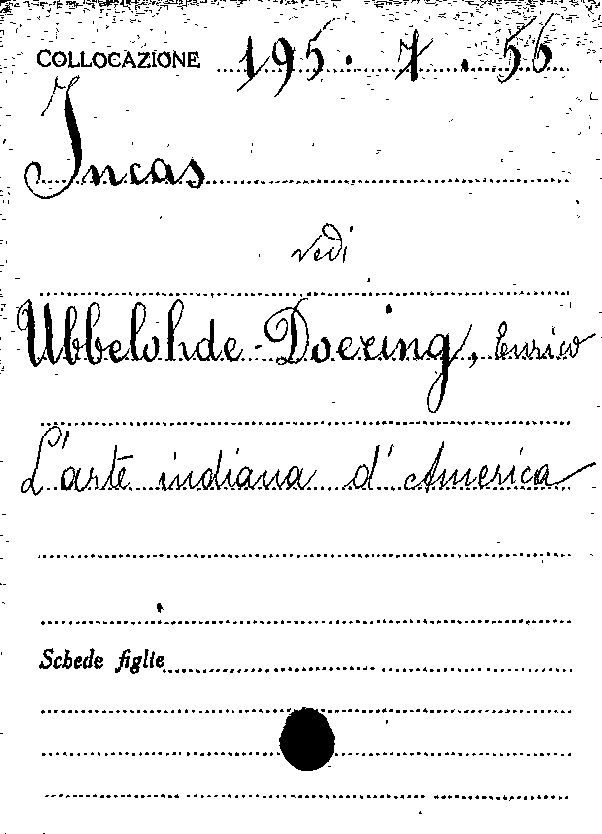 COLLOCAZIONE 195. 7. 56
Incas
vedi
Ubbelohde-Doering, Enrico
L'arte indiana d'America
Schede figlie